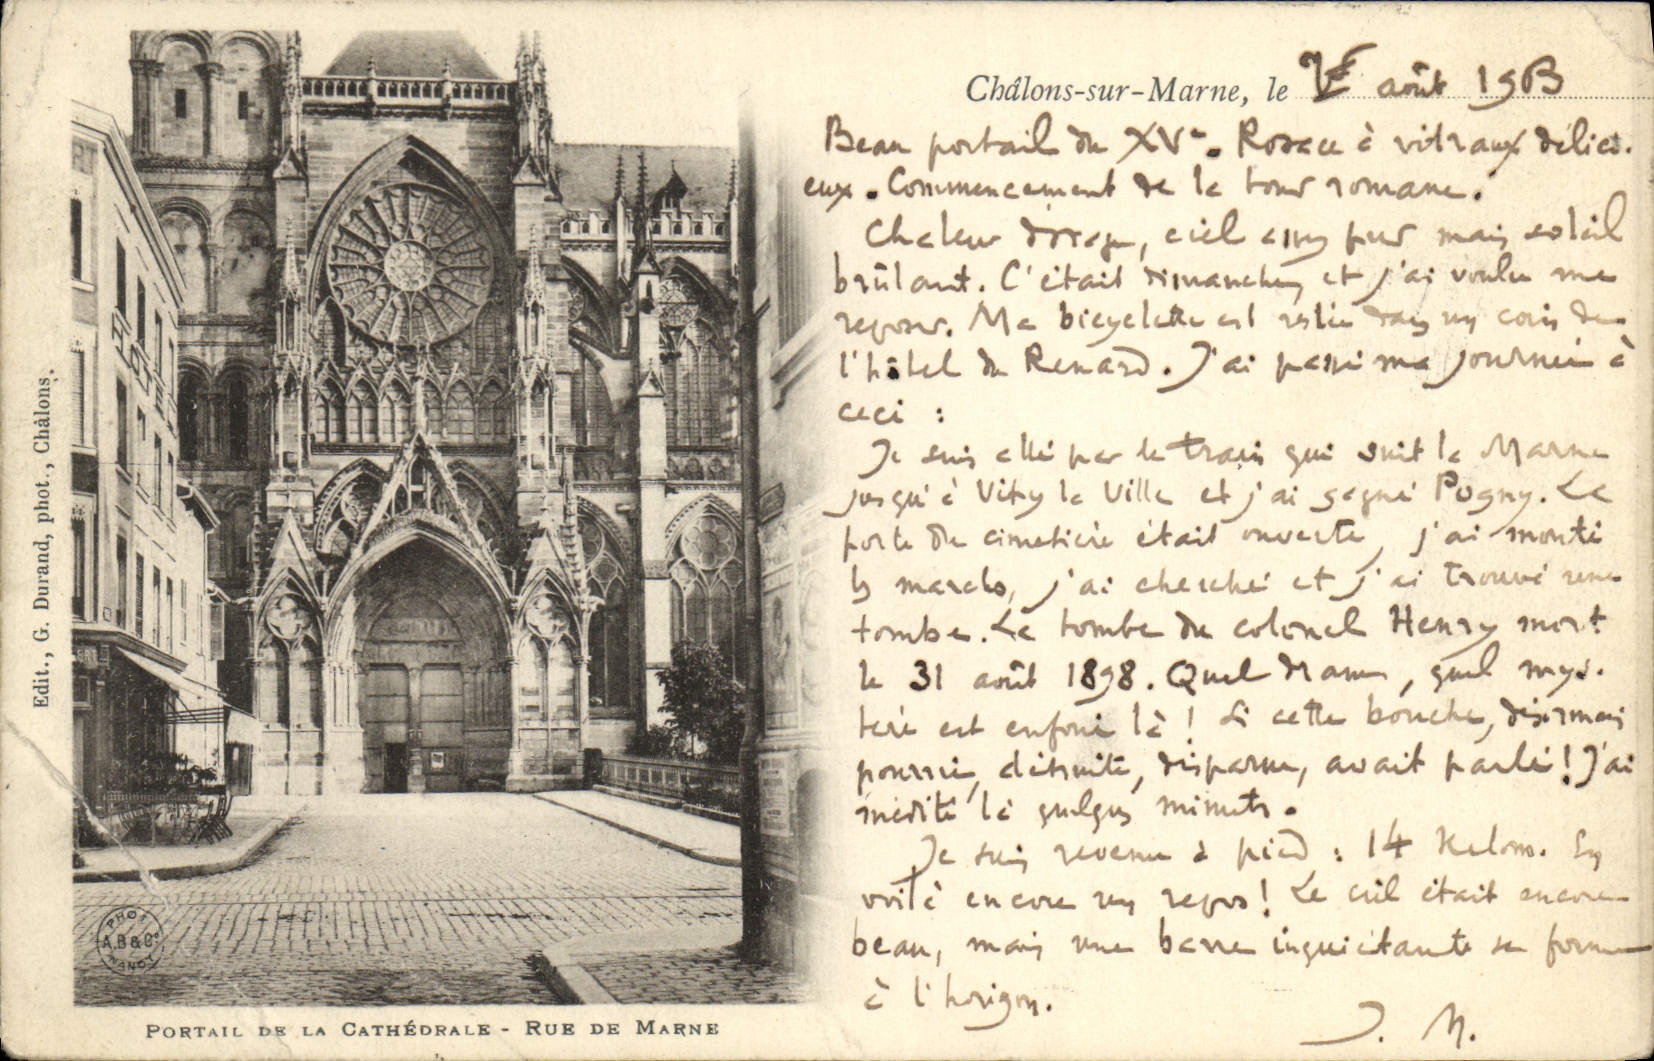 Châlons-sur-Marne, le août 1903
Beau portail du XVe. Rosace à vitraux délici-
eux. Commencement de la tour romane.
Chaleur d'orage, ciel assez pur mais soleil
brûlant. C'était dimanche, et j'ai voulu me
reposer. Ma bicyclette est restée dans un coin de
l'hôtel du Renard. J'ai passé ma journée à
ceci :
Je suis allé par le train qui suit la Marne
jusqu'à Vitry la Ville et j'ai gagné Pogny. La
porte du cimetière était ouverte, j'ai monté
les marches, j'ai cherché et j'ai trouvé une
tombe. La tombe du colonel Henry mort
le 31 août 1898. Quel drame, quel mys-
tère est enfoui là ! Si cette bouche, désormais
pourrie, détruite, disparue, avait parlé ! J'ai
médité là quelques minutes.
Je suis revenu à pied : 14 Kilom. En
voilà encore un repos ! Le ciel était encore
beau, mais une barre inquiétante se forme
à l'horizon.
J. M.
Edit., G. Durand, phot., Châlons.
HOTEL
PHOT
A.B & Cie
NANCY
PORTAIL DE LA CATHÉDRALE - RUE DE MARNE